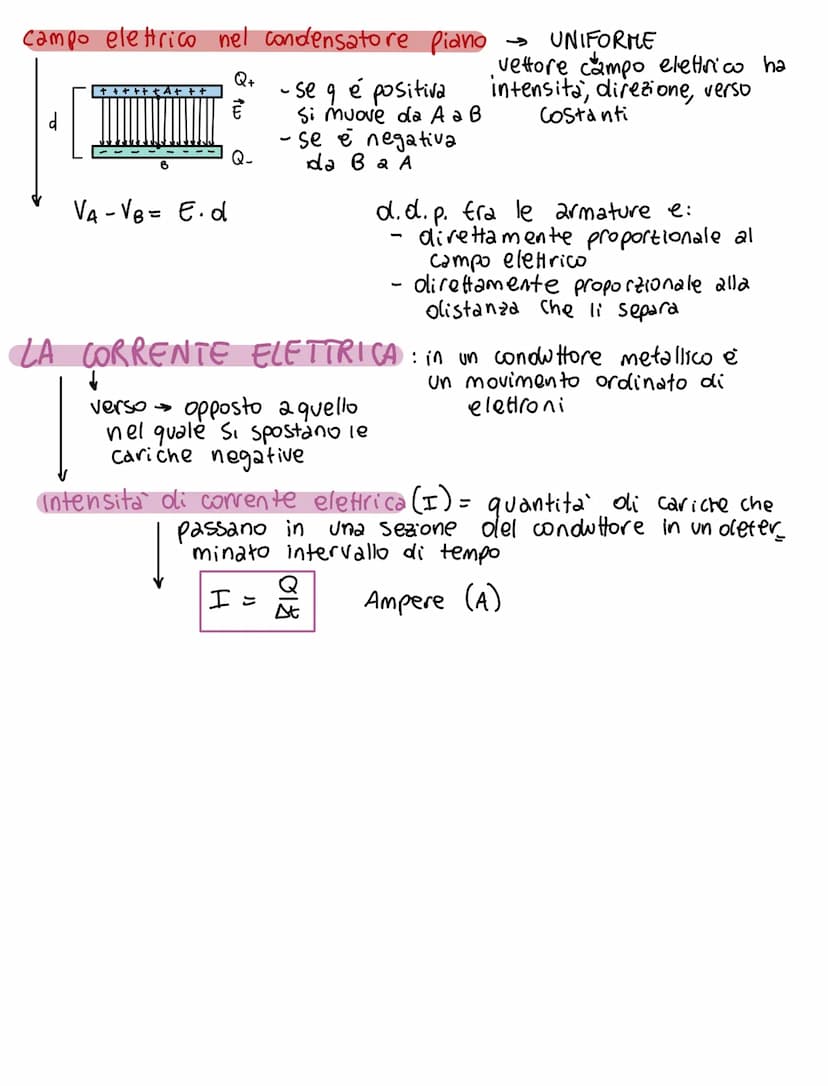 campo elettrico nel condensatore piano → UNIFORME
vettore campo elettrico ha
intensità, direzione, verso
costanti
+ + + + + + A + + +
Q+
E
d
- - - - - - - - -
B
Q-
- se q é positiva
si muove da A a B
- se é negativa
da B a A
VA - VB = E · d
d.d.p. tra le armature e:
- direttamente proportionale al
campo elettrico
- direttamente proporzionale alla
distanza che li separa
LA CORRENTE ELETTRICA : in un conduttore metallico é
un movimento ordinato di
elettroni
verso → opposto a quello
nel quale si spostano le
cariche negative
intensità di corrente elettrica (I) = quantità di cariche che
passano in una sezione del conduttore in un deter_
minato intervallo di tempo
I = Q/Δt Ampere (A)